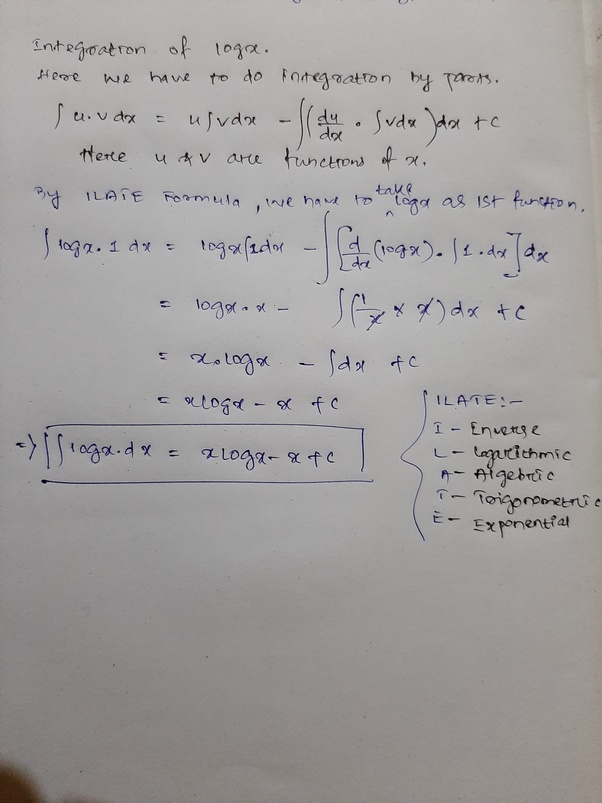 Integration of logx.
Here we have to do integration by parts.
∫ u.v dx = u ∫vdx - ∫(du/dx . ∫vdx)dx + c
Here u & v are functions of x.
By ILATE Formula, we have to take logx as 1st function.
∫ logx. 1 dx = logx∫1dx - ∫[d/dx (logx). ∫1.dx] dx
= logx.x - ∫(1/x × x) dx + c
= x.logx - ∫dx + c
= xlogx - x + c
=> ∫logx.dx = xlogx - x + c
ILATE:-
I - Enverse
L - Logarithmic
A - Algebric
T - Trigonometric
E - Exponential